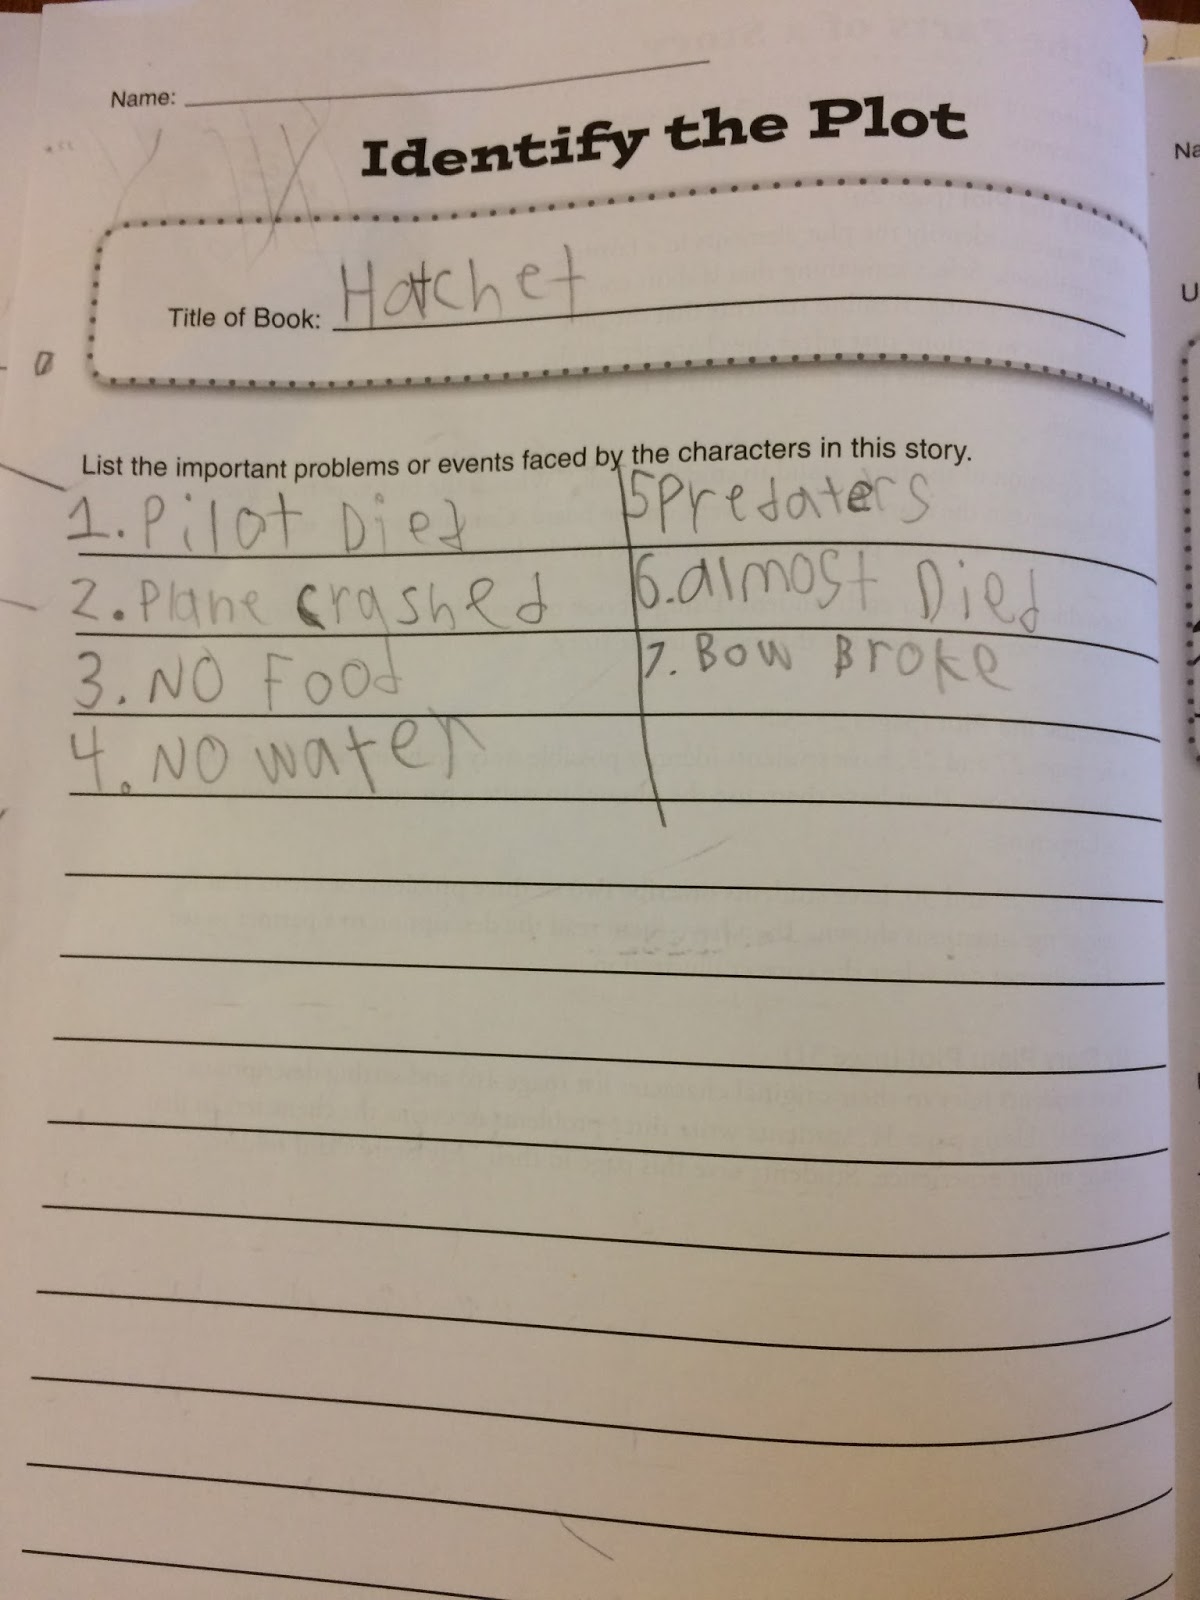 Name:
Identify the Plot
Title of Book: Hatchet
List the important problems or events faced by the characters in this story.
1. Pilot Died
2. Plane crashed
3. NO Food
4. NO water
5 Predaters
6. almost Died
7. Bow Broke
Na
U